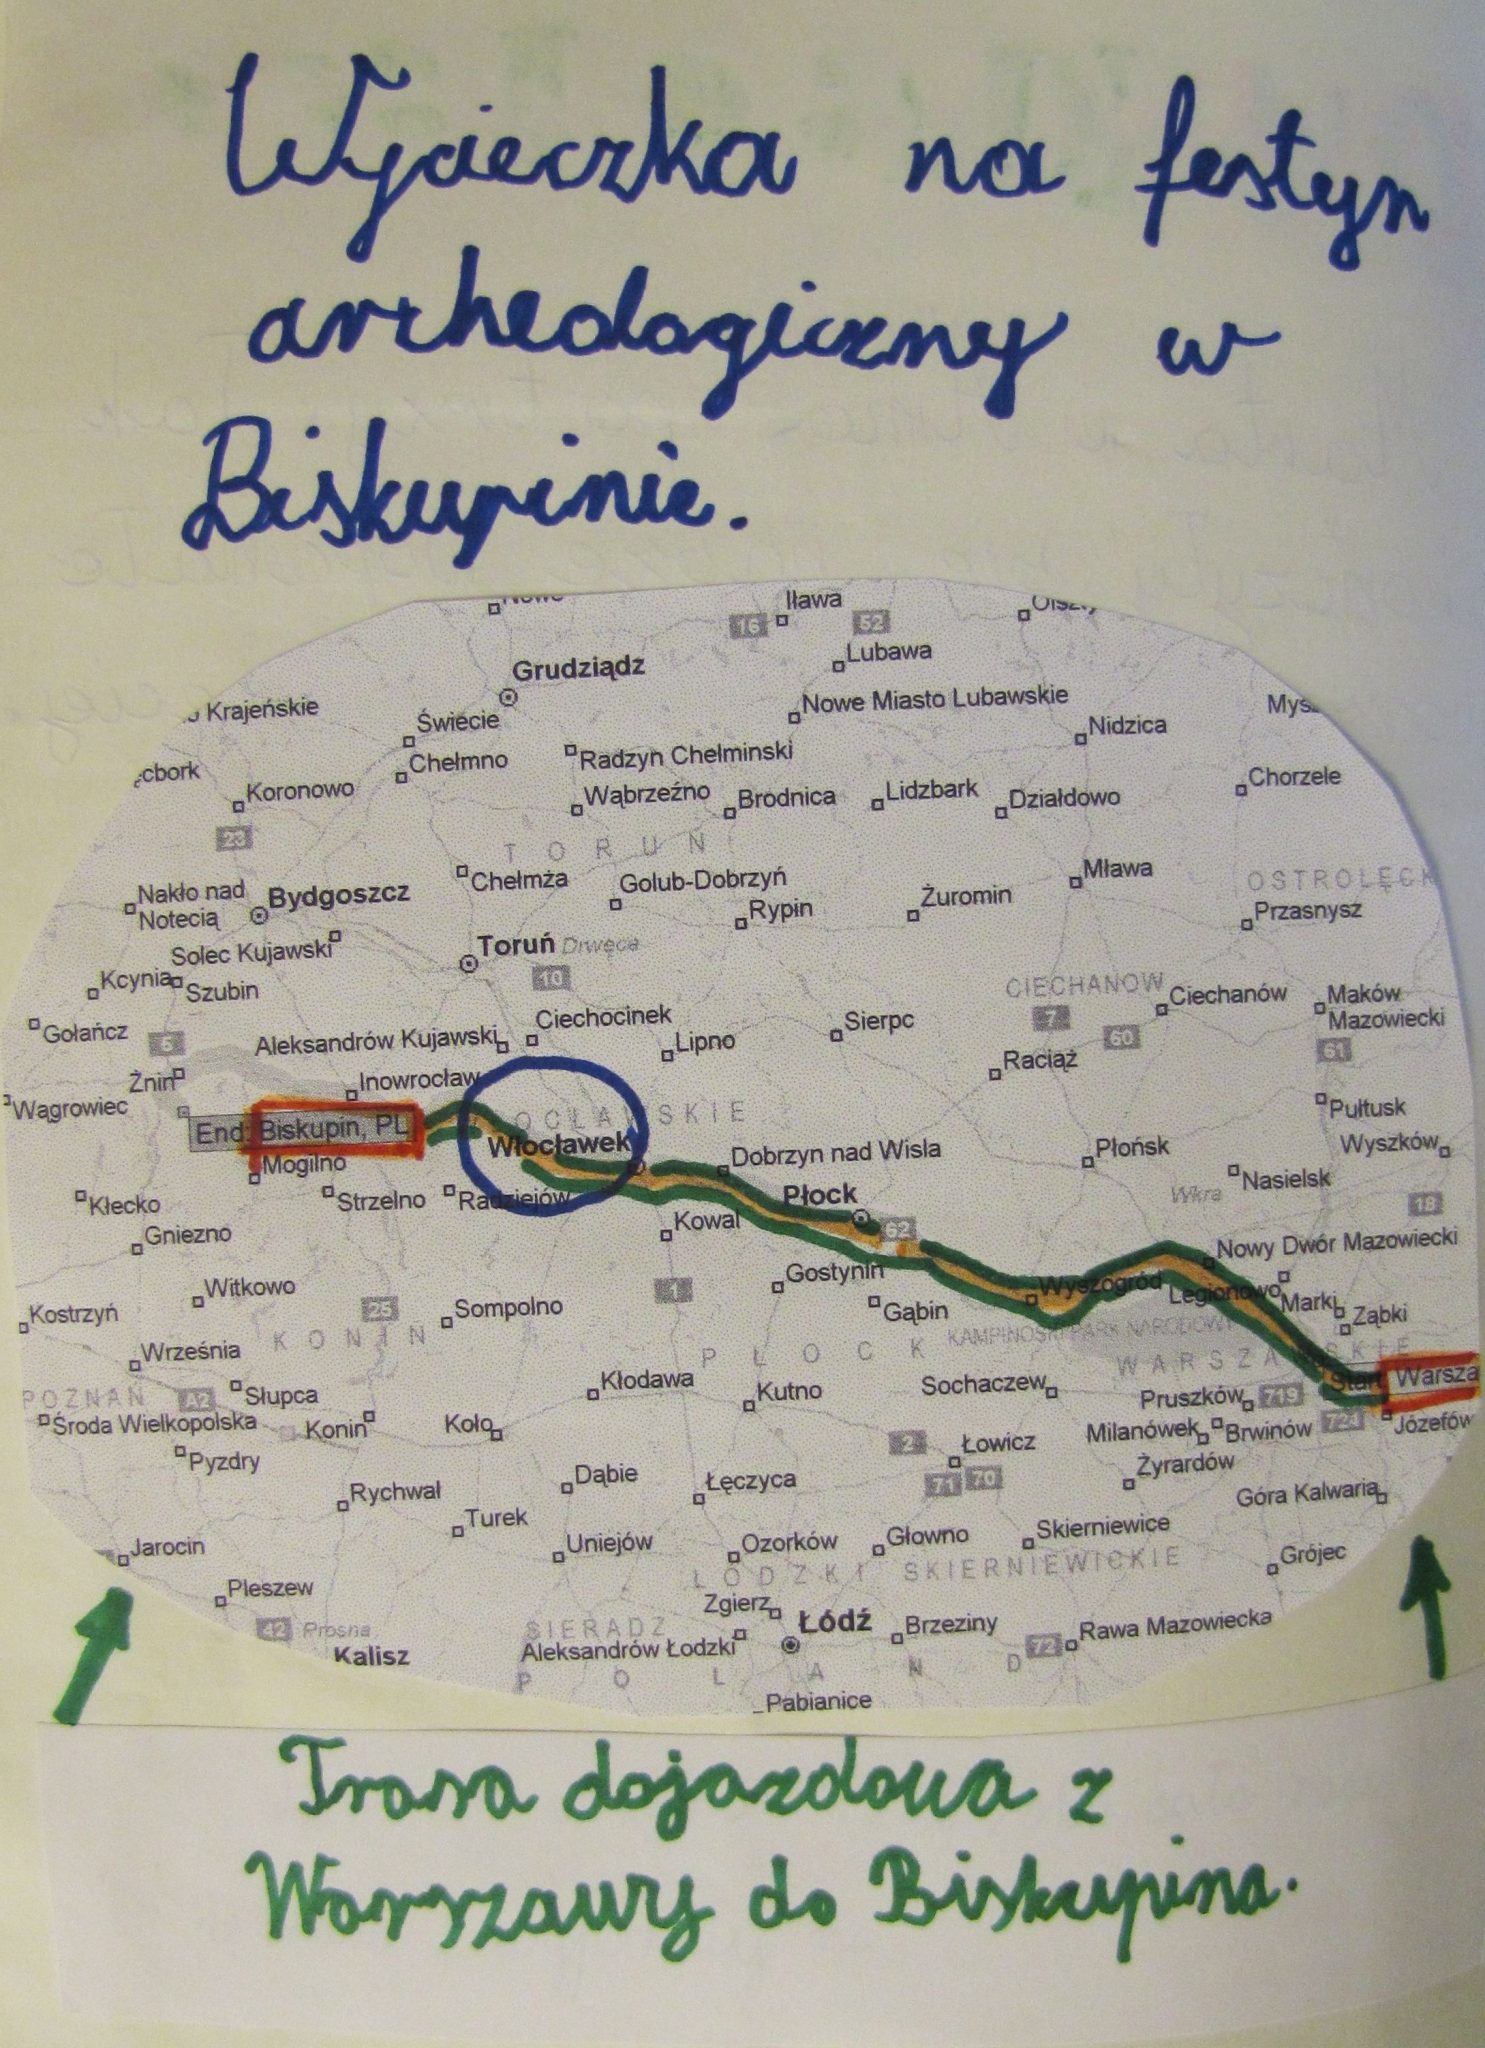 Wycieczka na festyn
archeologiczny w
Biskupinie.
Iława
16
52
Lubawa
Grudziądz
Nowe Miasto Lubawskie
Krajeńskie
Świecie
Nidzica
Chełmno
Radzyn Chelminski
Koronowo
Wąbrzeźno
Brodnica
Lidzbark
Działdowo
Chorzele
23
TORUN
Chełmża
Golub-Dobrzyń
Mława
OSTROLĘCK
Nakło nad
Notecią
Bydgoszcz
Rypin
Żuromin
Przasnysz
Solec Kujawski
Toruń
Drwęca
10
Kcynia
Szubin
CIECHANOW
Ciechanów
Maków
Mazowiecki
Gołańcz
5
Aleksandrów Kujawski
Ciechocinek
Lipno
Sierpc
7
60
61
Żnin
Inowrocław
Raciąż
Wągrowiec
OCŁAWSKIE
Pułtusk
End: Biskupin, PL
Włocławek
Dobrzyn nad Wisla
Płońsk
Wyszków
Mogilno
Kłecko
Strzelno
Radziejów
Płock
Wkra
Nasielsk
18
Gniezno
Kowal
62
Nowy Dwór Mazowiecki
Witkowo
1
Gostynin
Wyszogród
Legionowo
Marki
Kostrzyń
25
Sompolno
Gąbin
Ząbki
KONIN
PŁOCK
KAMPINOSKI PARK NARODOWY
WARSZAWSKIE
Września
Słupca
Kłodawa
Kutno
Sochaczew
Start
Warsza
POZNAŃ
A2
Pruszków
719
Środa Wielkopolska
Konin
Koło
Milanówek
Brwinów
724
Józefów
Pyzdry
2
Łowicz
Rychwał
Dąbie
Łęczyca
71
70
Żyrardów
Góra Kalwaria
Turek
Uniejów
Ozorków
Głowno
Skierniewice
Jarocin
LODZKI
SKIERNIEWICKIE
Grójec
Pleszew
Zgierz
42
Prosna
SIERADZ
Łódź
Brzeziny
72
Rawa Mazowiecka
Kalisz
Aleksandrów Łodzki
POLAND
Pabianice
Trasa dojazdowa z
Warszawy do Biskupina.